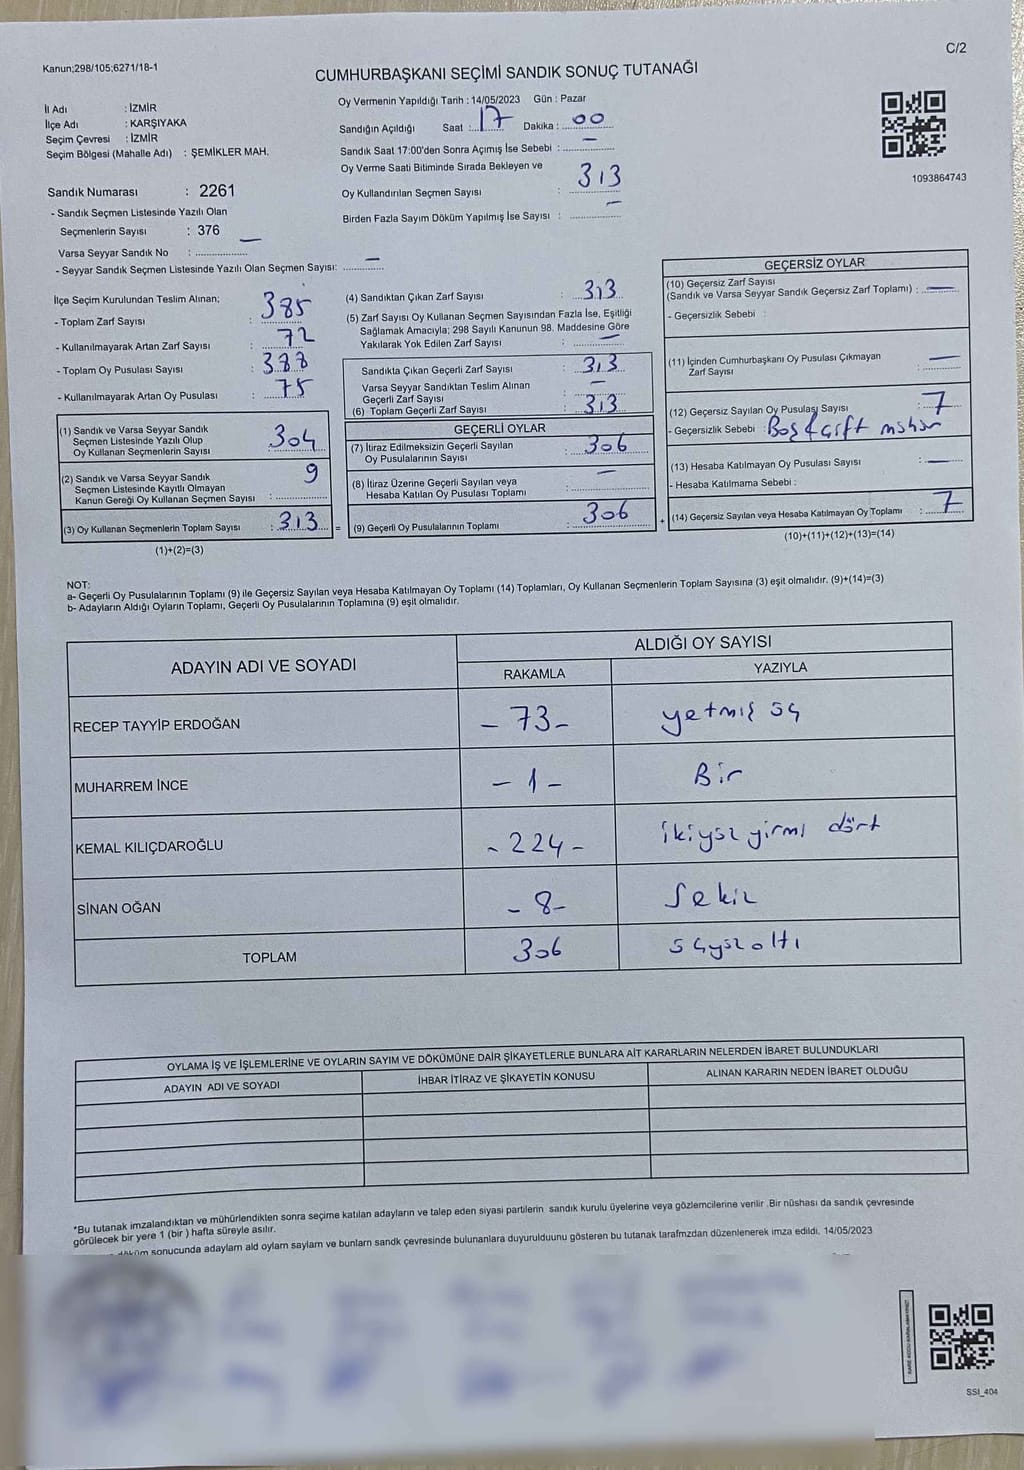 C/2
Kanun;298/105;6271/18-1
CUMHURBAŞKANI SEÇİMİ SANDIK SONUÇ TUTANAĞI
İl Adı : İZMİR
İlçe Adı : KARŞIYAKA
Seçim Çevresi : İZMİR
Seçim Bölgesi (Mahalle Adı) : ŞEMİKLER MAH.
Sandık Numarası : 2261
- Sandık Seçmen Listesinde Yazılı Olan
Seçmenlerin Sayısı : 376
Varsa Seyyar Sandık No : —
- Seyyar Sandık Seçmen Listesinde Yazılı Olan Seçmen Sayısı: —
Oy Vermenin Yapıldığı Tarih : 14/05/2023 Gün : Pazar
Sandığın Açıldığı Saat : 17 Dakika : 00
Sandık Saat 17:00'den Sonra Açımış İse Sebebi : —
Oy Verme Saati Bitiminde Sırada Bekleyen ve
Oy Kullandırılan Seçmen Sayısı : 313
Birden Fazla Sayım Döküm Yapılmış İse Sayısı : —
1093864743
İlçe Seçim Kurulundan Teslim Alınan;
- Toplam Zarf Sayısı : 385
- Kullanılmayarak Artan Zarf Sayısı : 72
- Toplam Oy Pusulası Sayısı : 388
- Kullanılmayarak Artan Oy Pusulası : 75
(1) Sandık ve Varsa Seyyar Sandık
Seçmen Listesinde Yazılı Olup
Oy Kullanan Seçmenlerin Sayısı : 304
(2) Sandık ve Varsa Seyyar Sandık
Seçmen Listesinde Kayıtlı Olmayan
Kanun Gereği Oy Kullanan Seçmen Sayısı : 9
(3) Oy Kullanan Seçmenlerin Toplam Sayısı : 313 =
(1)+(2)=(3)
(4) Sandıktan Çıkan Zarf Sayısı : 313
(5) Zarf Sayısı Oy Kullanan Seçmen Sayısından Fazla İse, Eşitliği
Sağlamak Amacıyla; 298 Sayılı Kanunun 98. Maddesine Göre
Yakılarak Yok Edilen Zarf Sayısı : —
Sandıkta Çıkan Geçerli Zarf Sayısı : 313
Varsa Seyyar Sandıktan Teslim Alınan
Geçerli Zarf Sayısı : —
(6) Toplam Geçerli Zarf Sayısı : 313
GEÇERLİ OYLAR
(7) İtiraz Edilmeksizin Geçerli Sayılan
Oy Pusulalarının Sayısı : 306
(8) İtiraz Üzerine Geçerli Sayılan veya
Hesaba Katılan Oy Pusulası Toplamı : —
(9) Geçerli Oy Pusulalarının Toplamı : 306 +
GEÇERSİZ OYLAR
(10) Geçersiz Zarf Sayısı
(Sandık ve Varsa Seyyar Sandık Geçersiz Zarf Toplamı) : —
- Geçersizlik Sebebi :
(11) İçinden Cumhurbaşkanı Oy Pusulası Çıkmayan
Zarf Sayısı : —
(12) Geçersiz Sayılan Oy Pusulası Sayısı : 7
- Geçersizlik Sebebi : Boş Çift mühür
(13) Hesaba Katılmayan Oy Pusulası Sayısı : —
- Hesaba Katılmama Sebebi :
(14) Geçersiz Sayılan veya Hesaba Katılmayan Oy Toplamı : 7
(10)+(11)+(12)+(13)=(14)
NOT:
a- Geçerli Oy Pusulalarının Toplamı (9) ile Geçersiz Sayılan veya Hesaba Katılmayan Oy Toplamı (14) Toplamları, Oy Kullanan Seçmenlerin Toplam Sayısına (3) eşit olmalıdır. (9)+(14)=(3)
b- Adayların Aldığı Oyların Toplamı, Geçerli Oy Pusulalarının Toplamına (9) eşit olmalıdır.
ADAYIN ADI VE SOYADI
ALDIĞI OY SAYISI
RAKAMLA YAZIYLA
RECEP TAYYİP ERDOĞAN - 73 - yetmiş üç
MUHARREM İNCE - 1 - Bir
KEMAL KILIÇDAROĞLU - 224 - ikiyüz yirmi dört
SİNAN OĞAN - 8 - Sekiz
TOPLAM 306 üçyüz altı
OYLAMA İŞ VE İŞLEMLERİNE VE OYLARIN SAYIM VE DÖKÜMÜNE DAİR ŞİKAYETLERLE BUNLARA AİT KARARLARIN NELERDEN İBARET BULUNDUKLARI
ADAYIN ADI VE SOYADI İHBAR İTİRAZ VE ŞİKAYETİN KONUSU ALINAN KARARIN NEDEN İBARET OLDUĞU
*Bu tutanak imzalandıktan ve mühürlendikten sonra seçime katılan adayların ve talep eden siyasi partilerin sandık kurulu üyelerine veya gözlemcilerine verilir .Bir nüshası da sandık çevresinde
görülecek bir yere 1 (bir ) hafta süreyle asılır.
sonucunda adaylarn ald oylarn saylarn ve bunlarn sandk çevresinde bulunanlara duyurulduunu gösteren bu tutanak tarafmzdan düzenlenerek imza edildi. 14/05/2023
SSI_404